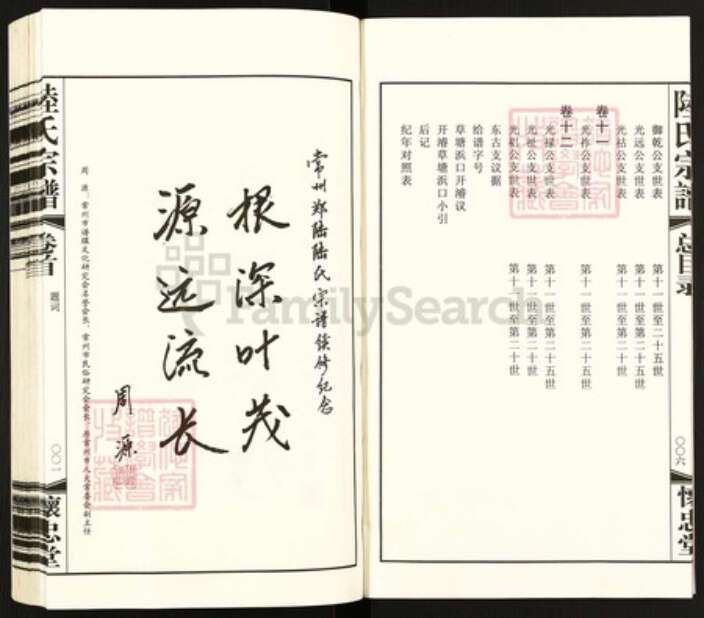 陸氏宗譜
总目录
〇〇六
懷忠堂
御乾公支世表 第十一世至二十五世
光远公支世表 第十一世至第二十五世
光祜公支世表 第十一世至第二十世
卷十一
光祚公支世表 第十一世至第二十五世
卷十二
光禄公支世表 第十一世至第二十五世
光祉公支世表 第十二世至第二十世
公支世表 第十一世至第二十世
东古支议据
给谱字号
草塘浜口开濬议
开濬草塘浜口小引
后记
纪年对照表
常州郑陆陆氏宗谱续修纪念
根深叶茂
源远流长
周源
周源：常州市谱牒文化研究会名誉会长、常州市民俗研究会会长、原常州市人大常委会副主任
陸氏宗譜
卷首
题词
〇〇一
懷忠堂
FamilySearch